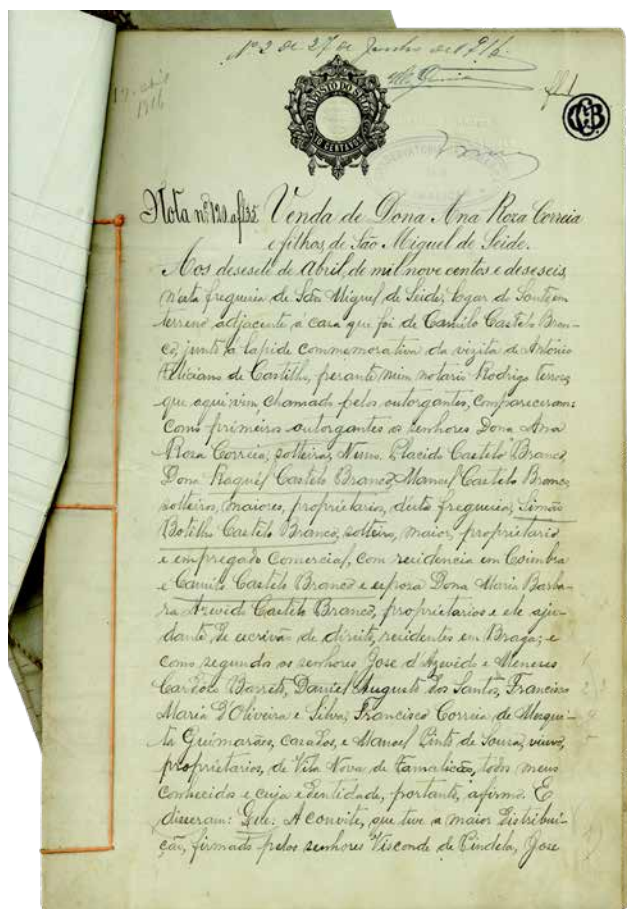 Nº 2 de 27 de Junho de 1916.
19 abril
1916
fl 1
IMPOSTO DO SELO
10 CENTAVOS
CCB
Nota nº 120 a fl 35. Venda de Dona Ana Roza Correia
e filhos, de São Miguel de Seide.
Aos desesete de Abril, de mil nove centos e deseseis,
n'esta freguezia de São Miguel de Seide, logar de
terreno adjacente á casa que foi de Camilo Castelo Bran-
co, junto á lapide commemorativa da vizita de António
Feliciano de Castilho, perante mim notario Rodrigo Terroso,
que aqui vim chamado pelos outorgantes, compareceram:
como primeiros outorgantes os senhores Dona Ana
Roza Correia, solteira, Nuno Placido Castelo Branco,
Dona Raquel Castelo Branco, Manoel Castelo Branco,
solteiros, maiores, proprietarios, d'esta freguezia, Simão
Botelho Castelo Branco, solteiro, maior, proprietario
e empregado comercial, com residencia em Coimbra
e Camilo Castelo Branco e espoza Dona Maria Barba-
ra Azevedo Castelo Branco, proprietarios e ele aju-
dante de escrivão de direito, residentes em Braga; e
como segundos os senhores Jose d'Azevedo e Menezes
Cardoso Barreto, Daniel Augusto dos Santos, Francisco
Maria D'Oliveira e Silva, Francisco Correia de Mesqui-
ta Guimarães, casados, e Manoel Pinto de Sousa, viuvo,
proprietarios, de Vila Nova de Famalicão, todos meus
conhecidos e cuja identidade, portanto, afirmo. E
disseram: Que: A convite, que teve a maior distribui-
ção, firmado pelos senhores Visconde de Pindela, Jose